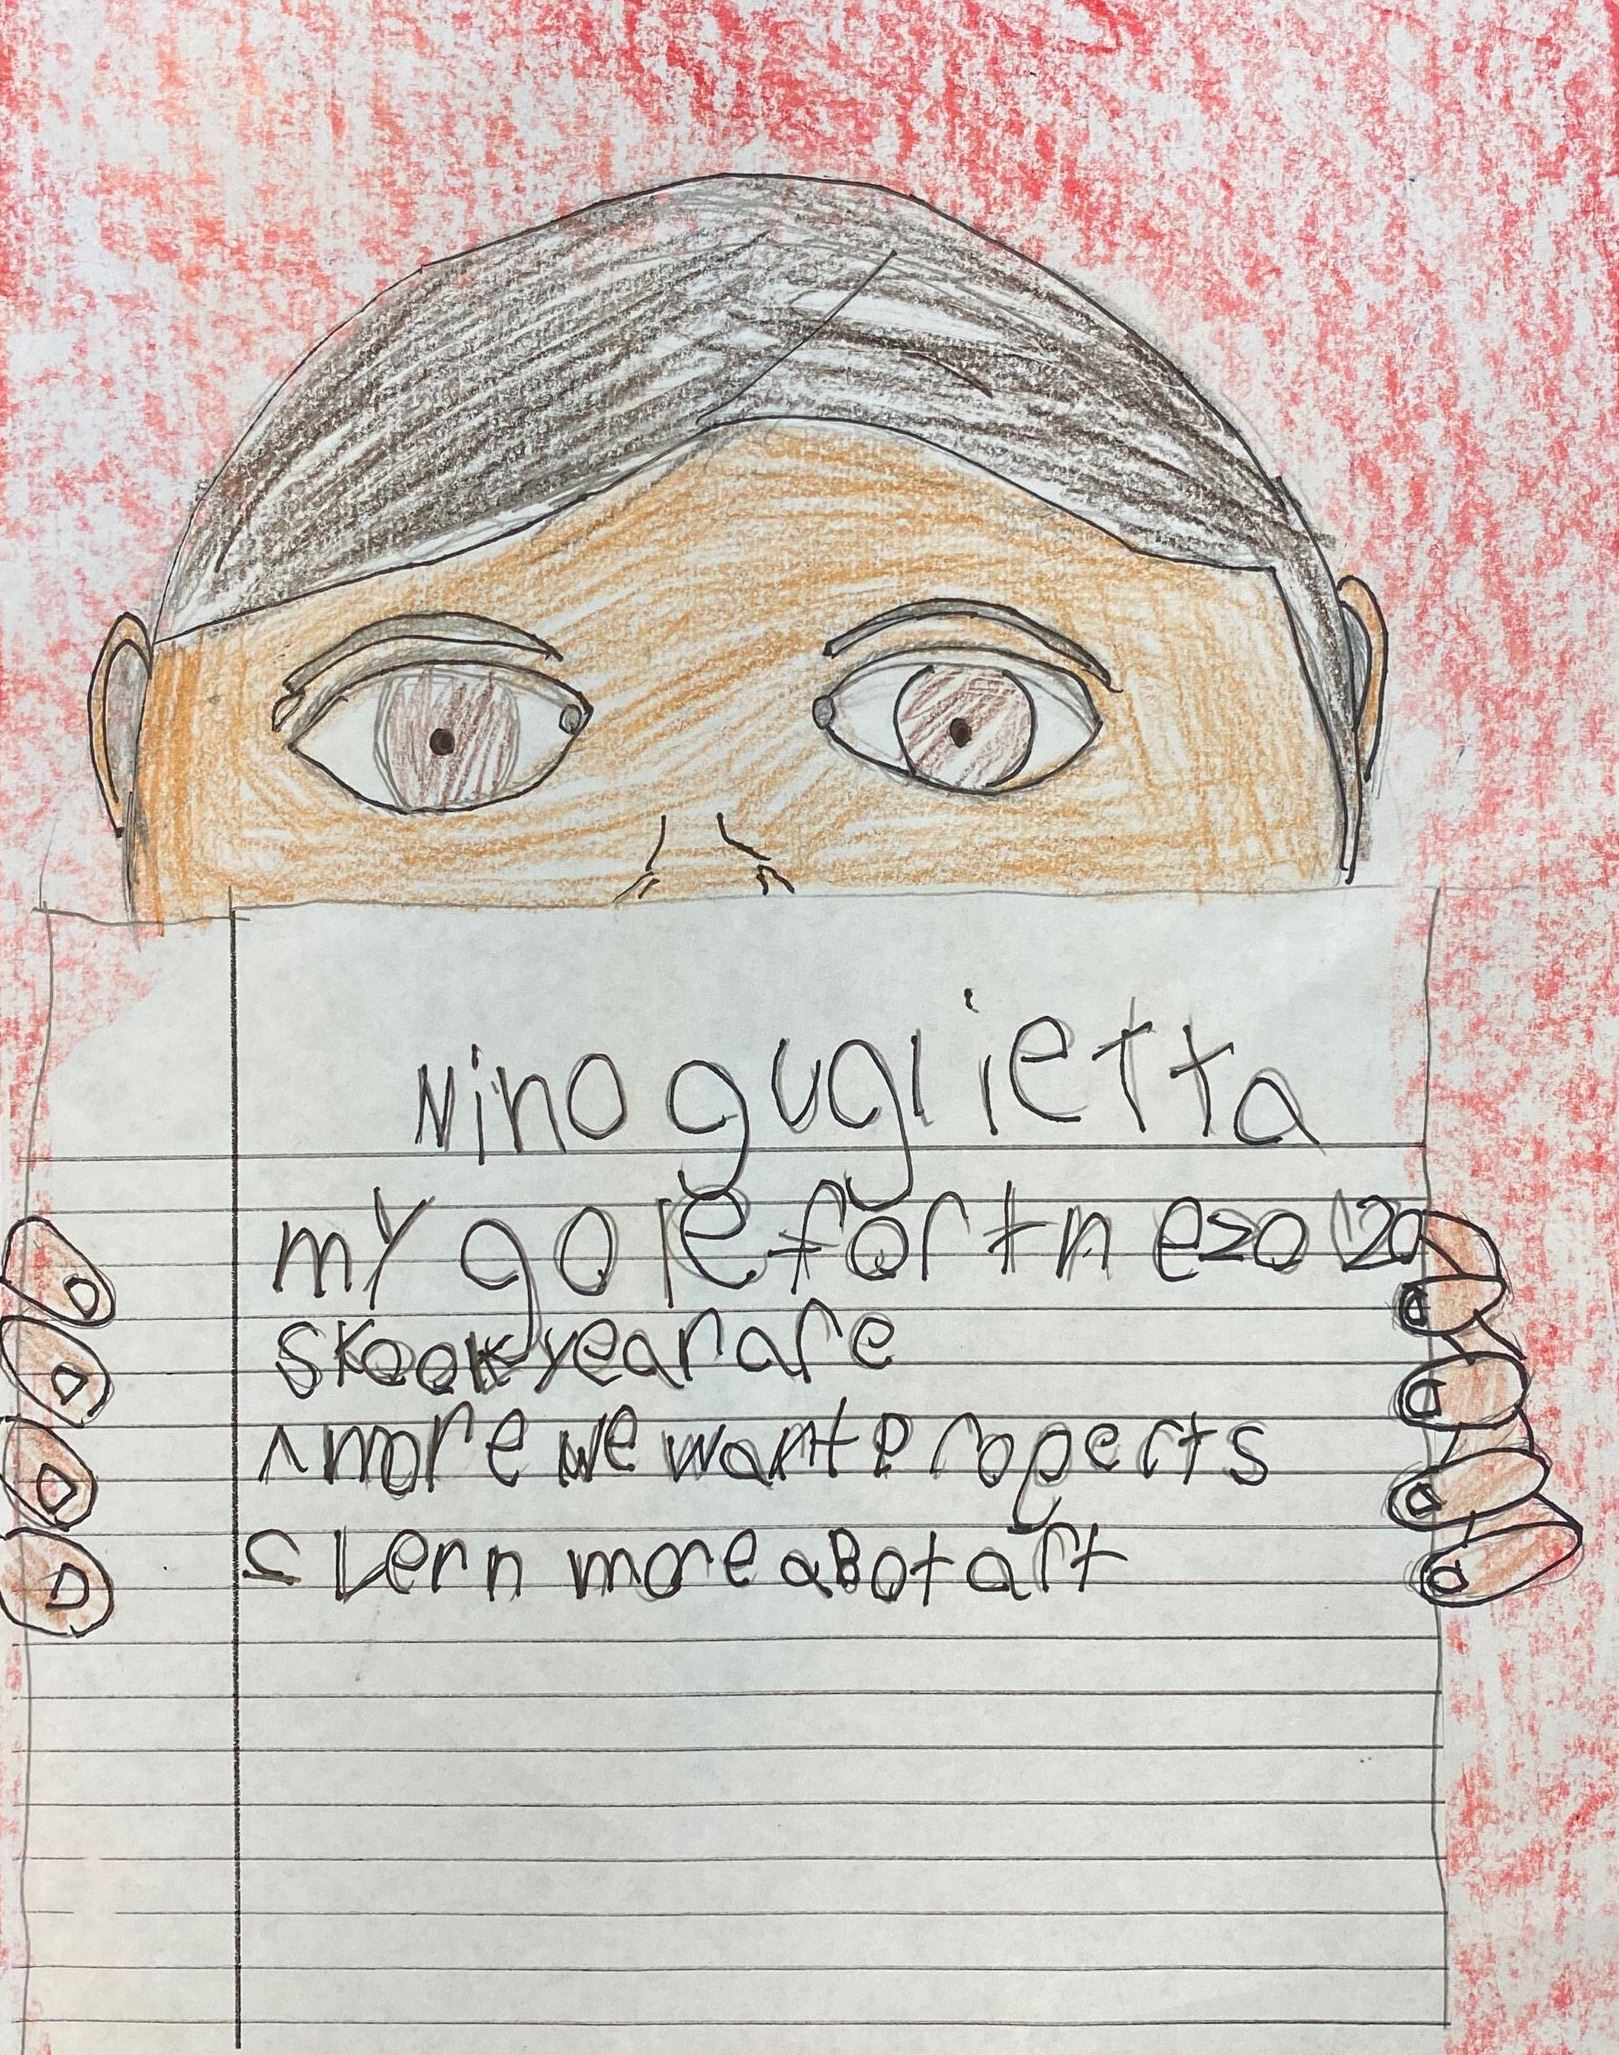 Nino guglietta
my gole for th e 2019 20
skook year are
1 more we want Properts
2 Lern more aBot art